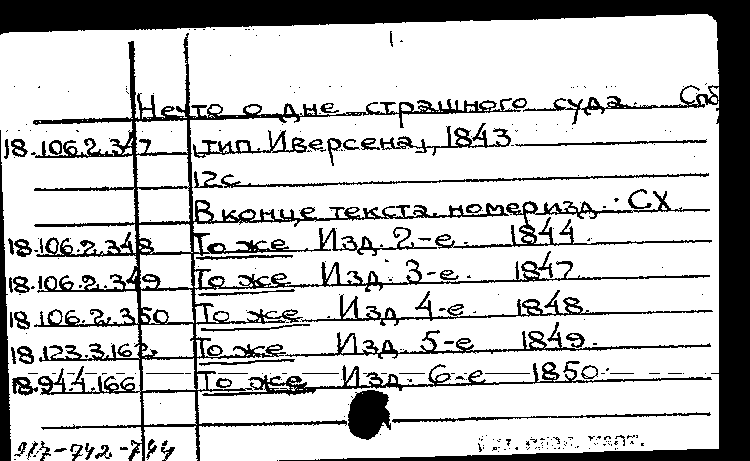 1.
Нечто о дне страшного суда. Спб,
18.106.2.347 [тип. Иверсена], 1843
12с.
В конце текста номер изд.: CX
18.106.2.348 То же Изд. 2-е. 1844.
18.106.2.349 То же Изд. 3-е. 1847
18.106.2.350 То же Изд. 4-е 1848.
18.123.3.162. То же Изд. 5-е 1849.
18.944.166 То же Изд. 6-е 1850.